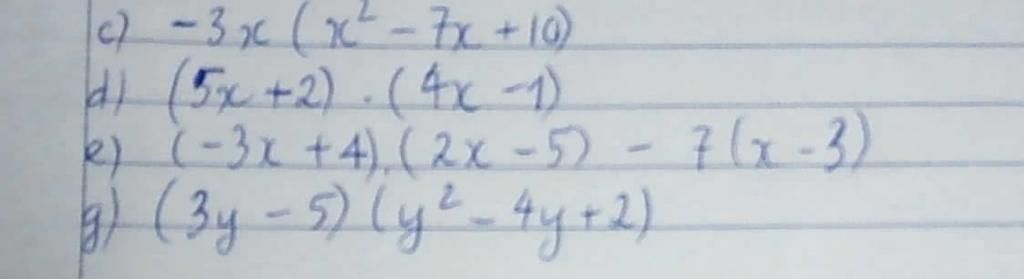 c) -3x (x² - 7x + 10)
d) (5x + 2) . (4x - 1)
e) (-3x + 4).(2x - 5) - 7(x - 3)
g) (3y - 5) (y² - 4y + 2)